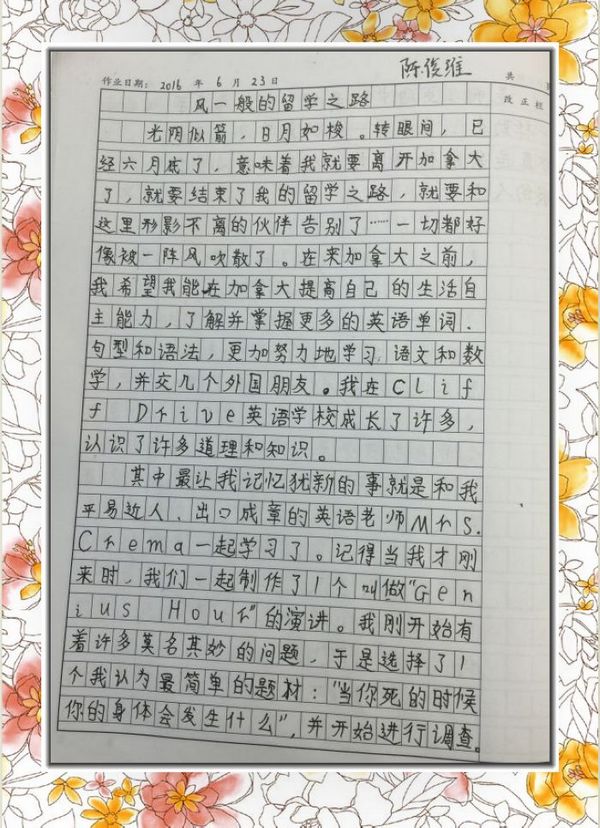 陈俊维
作业日期：2016 年 6 月 23 日
共
改正栏
风一般的留学之路
光阴似箭，日月如梭。转眼间，已
经六月底了，意味着我就要离开加拿大
了，就要结束了我的留学之路，就要和
这里形影不离的伙伴告别了……一切都好
像被一阵风吹散了。在来加拿大之前，
我希望我能在加拿大提高自己的生活自
主能力，了解并掌握更多的英语单词、
句型和语法，更加努力地学习语文和数
学，并交几个外国朋友。我在Clif
f Drive英语学校成长了许多，
认识了许多道理和知识。
其中最让我记忆犹新的事就是和我
平易近人、出口成章的英语老师Mrs.
Crema一起学习了。记得当我才刚
来时，我们一起制作了1个叫做“Gen
ius Hour”的演讲。我刚开始有
着许多莫名其妙的问题，于是选择了1
个我认为最简单的题材：“当你死的时候
你的身体会发生什么”，并开始进行调查。